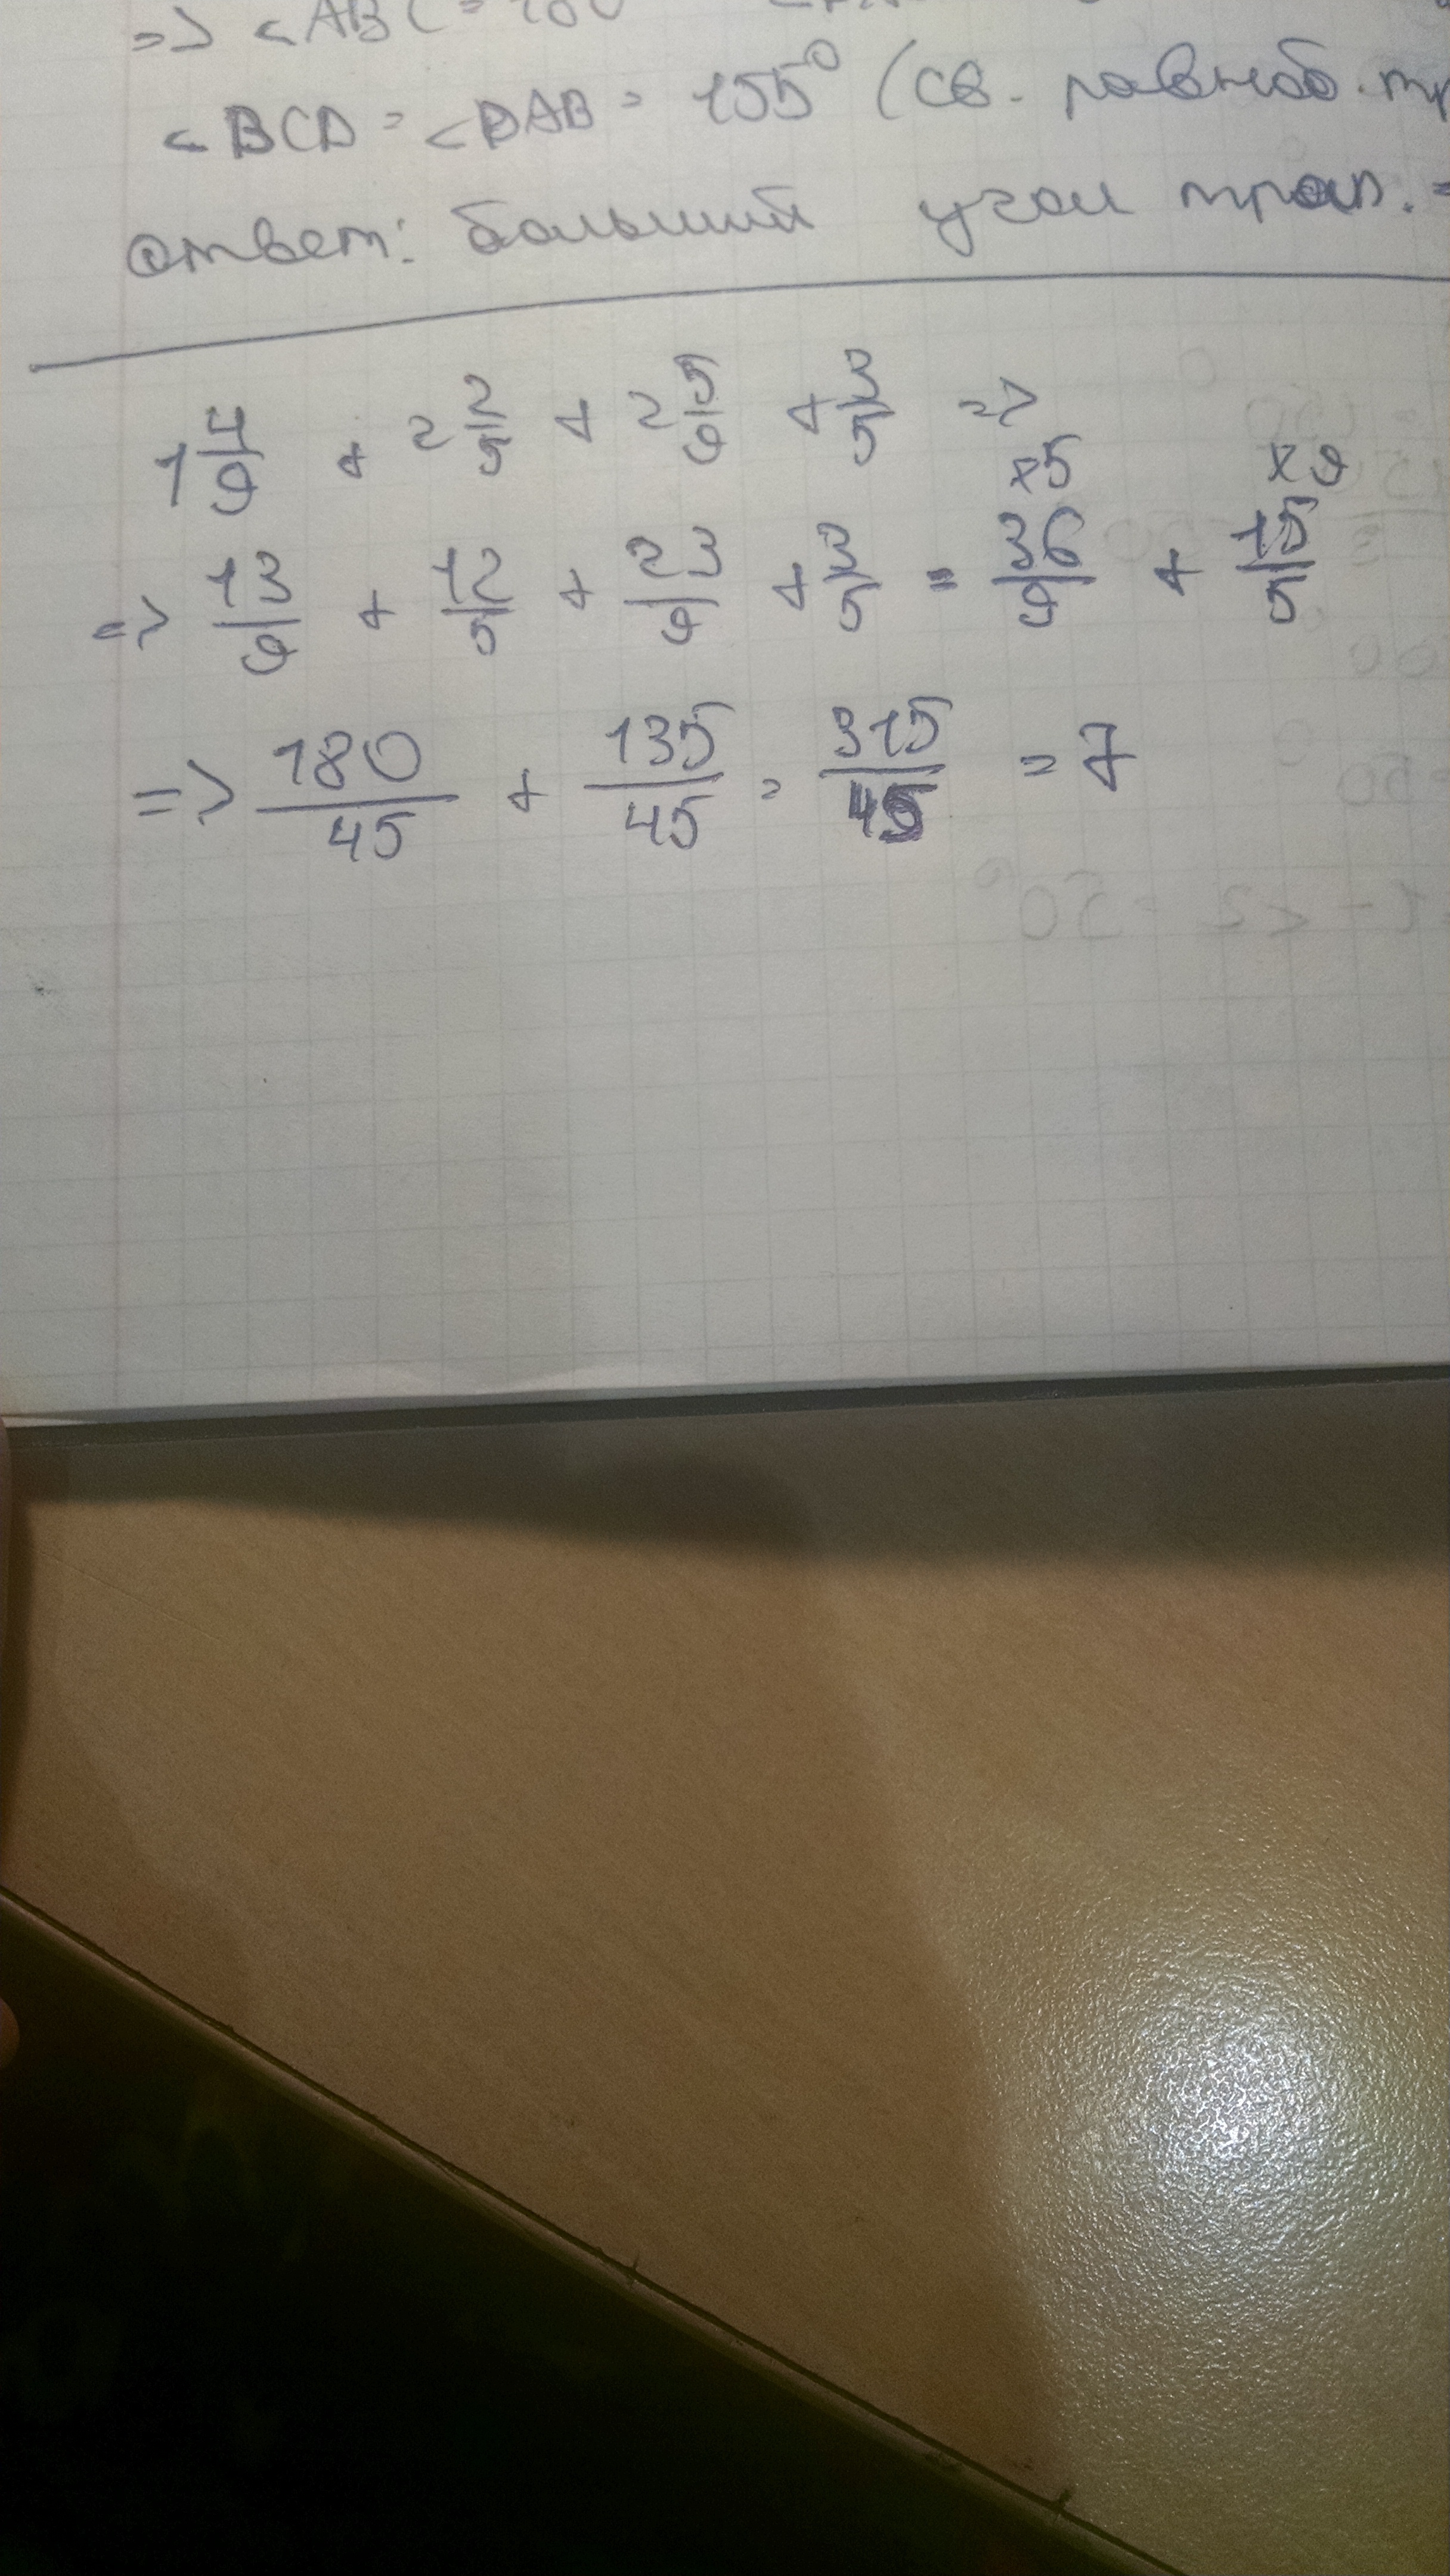 => <ABC = 180
<BCD = <DAB = 155° (св. равноб. тр
ответ: больший угол трап. =
1 4/9 + 2 2/5 + 2 5/9 + 3/5 =>
x5 x9
=> 13/9 + 12/5 + 23/9 + 3/5 = 36/9 + 15/5
=> 180/45 + 135/45 = 315/45 = 7